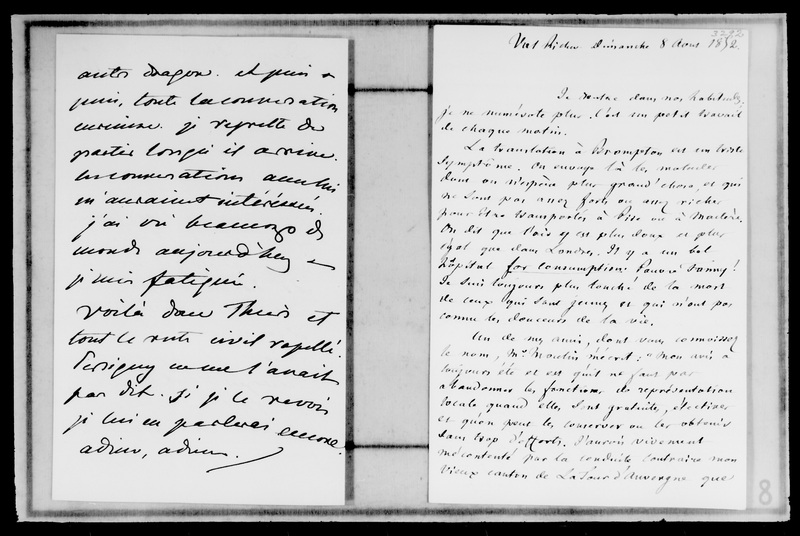 autre dragon. et puis a
puis, toute la conversation
je regrette de
partir lorsqu'il arrive.
les conversations avec lui
m'auraient intéressée.
j'ai vu beaucoup de
monde aujourd'huy
je suis fatiguée.
voilà donc Thiers et
tout le reste civil rapellé.
Persigny ne me l'avait
pas dit. si je le revois
je lui en parlerai encore.
adieu, adieu.
3292
Val Richer Dimanche 8 Aout 1852
Je rentre dans nos habitudes;
je ne numérote plus. C'est un petit travail
de chaque matin.
La translation à Brompton est un triste
symptôme. On envoye là les malades
dont on n'espère plus grand chose, et qui
ne sont pas assez forts ou assez riches
pour être transportés à Pise ou à Madère.
On dit que l'air y est plus doux et plus
égal que dans Londres. Il y a un bel
hôpital for consumption. Pauvre Fanny!
Je suis toujours plus touché de la mort
de ceux qui sont jeunes et qui n'ont pas
connu les douceurs de la vie.
Un de mes amis, dont vous connoissez
le nom, Mr Moulin m'écrit: "Mon avis a
toujours été et est qu'il ne faut pas
abandonner les fonctions de représentation
locale quand elles sont gratuites, électives
et qu'on peut les conserver ou les obtenir
sans trop d'efforts. J'aurois vivement
mécontenté par la conduite contraire mon
vieux canton de La Tour d'Auvergne que
8